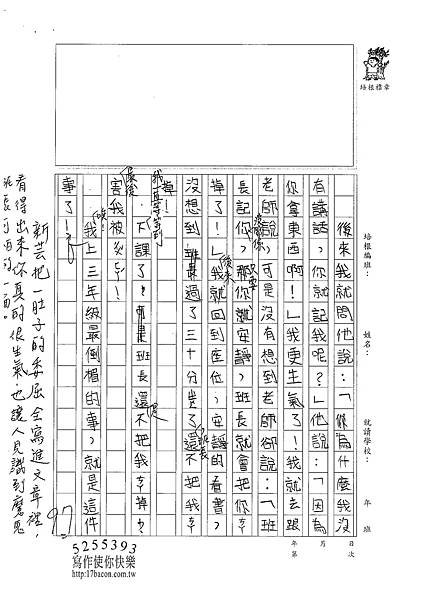 培根標章
培根編班：
姓名：
就讀學校：
年
班
年 月 日
第 次
後來我就問他說：「你為什麼我沒
有講話，你就記我呢？」他說：「因為
你拿東西啊！」我更生氣了！我就去跟
老師說，可是沒有想到老師卻說：「班
長記你，那你就安靜，班長就會把你ㄘㄚ
掉了！」我就回到座位，安靜的看書，
沒想到班長過了三十分鐘了還不把我ㄘㄚ
掉！
下課了，可是班長還不把我ㄘㄚ掉，
害我被
我上三年級最倒楣的事，就是這件
事了！
我一直等等到
最後
後來
新芸把一肚子的委屈全寫進文章裡，
看得出來你真的很生氣，也讓人見識到魔鬼
班長可怕的一面。
97
5255393
寫作使你快樂
http://17bacon.com.tw